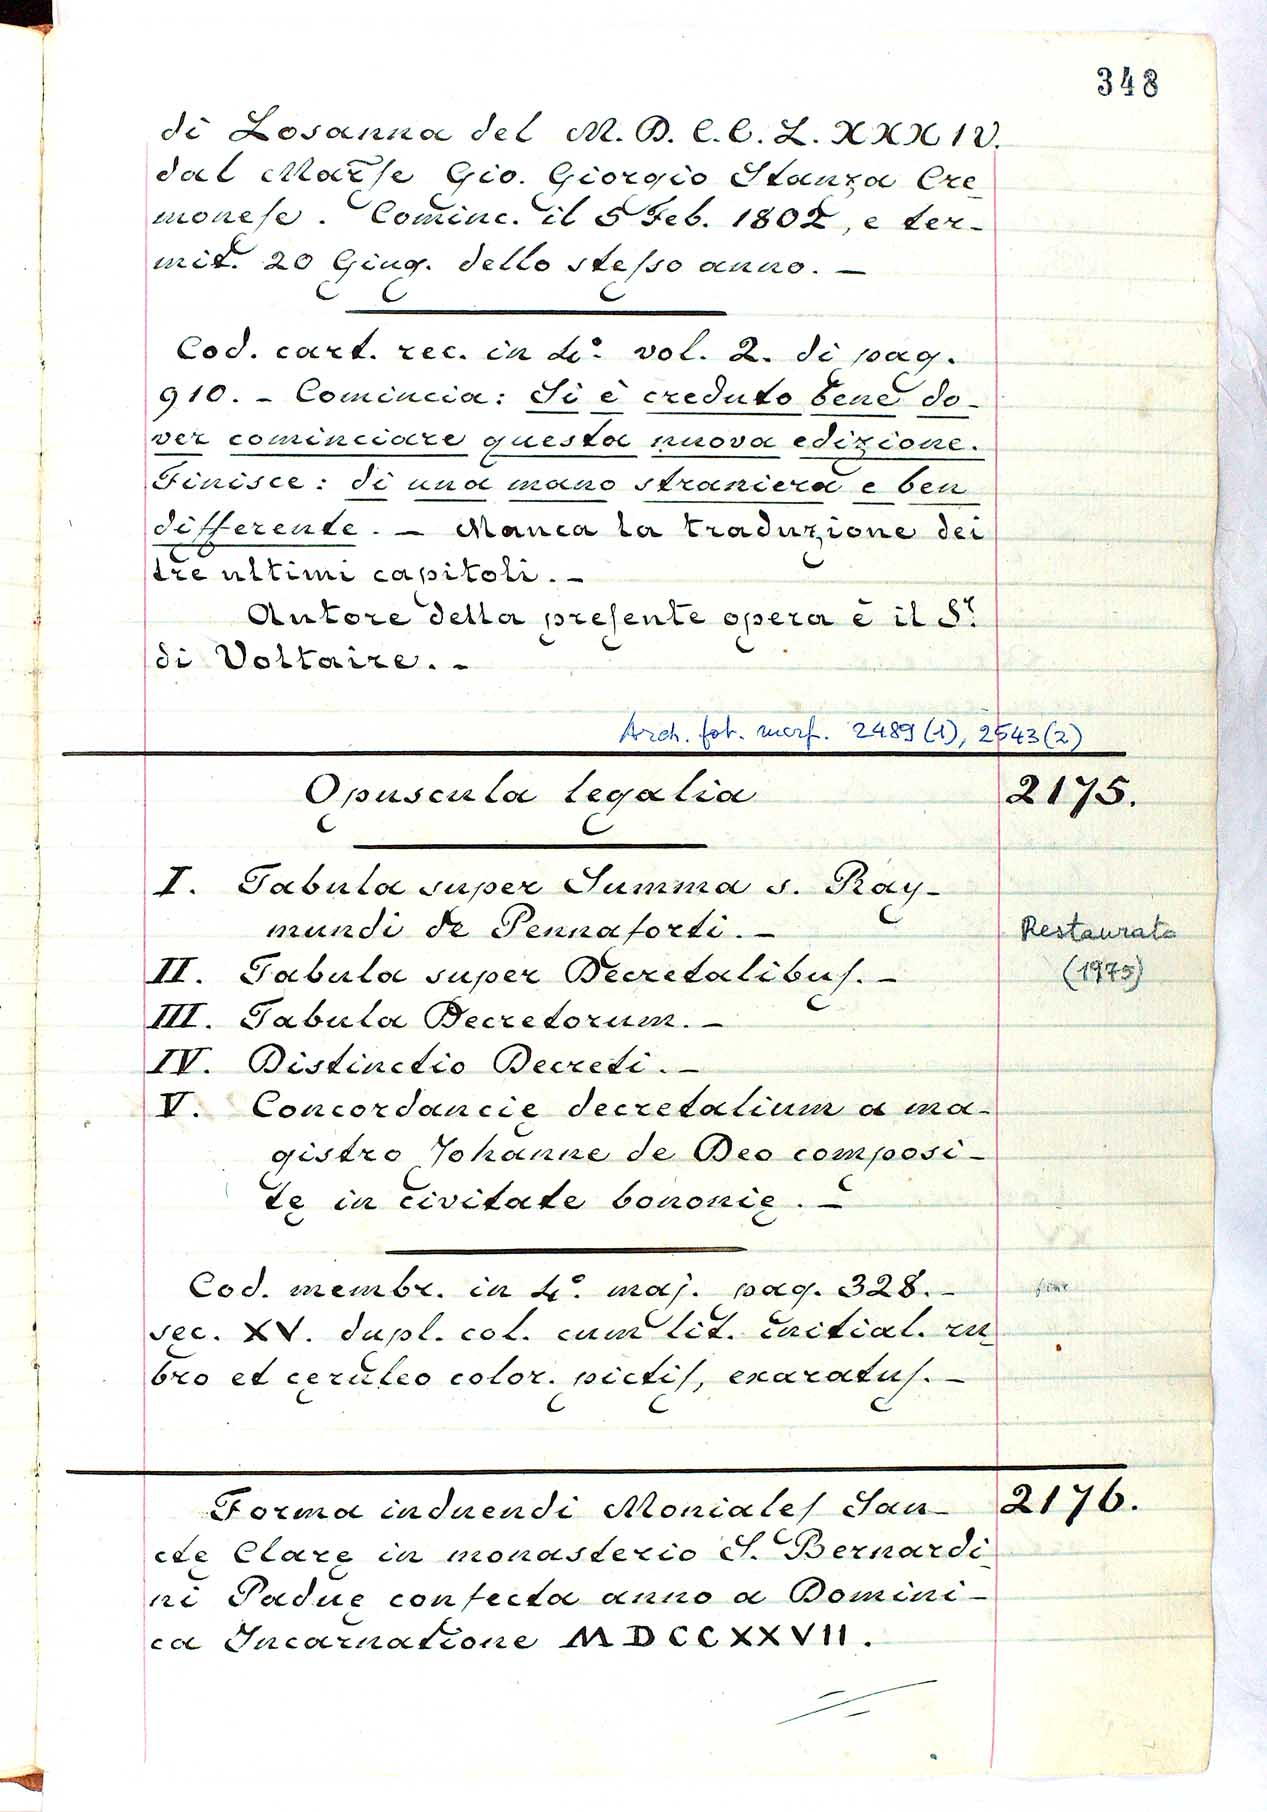 348
di Losanna del M. D. C. C. L. XXXIV.
dal March̃ſe Gio. Giorgio Stanga Cre-
moneſe. Cominc. il 5 Feb. 1802, e ter-
mit. 20 Giug. dello steſso anno. —
Cod. cart. rec. in 4.º vol. 2. di pag.
910. - Comincia: Si è creduto bene do-
ver cominciare questa nuova edizione.
Finisce: di una mano straniera e ben
differente. — Manca la traduzione dei
tre ultimi capitoli. -
Autore della preſente opera è il S.r
di Voltaire. -
Arch. fot. 2489 (1), 2543 (2)
Opuscula legalia 2175.
I. Tabula super Summa s. Ray-
mundi de Pennaforti. — Restaurato
II. Tabula super Decretalibuſ. — (1975)
III. Tabula Decretorum. —
IV. Distinctio Decreti. —
V. Concordancię decretalium a ma-
gistro Johanne de Deo composi-
tę in civitate bononię. —
Cod. membr. in 4.º maj. pag. 328. -
sec. XV. dupl. col. cum lit. initial. ru-
bro et cęruleo color. pictiſ, exaratuſ. —
Forma induendi Monialeſ San- 2176.
ctę Clarę in monasterio S. Bernardi-
ni Paduę confecta anno a Domini-
ca Incarnatione MDCCXXVII.